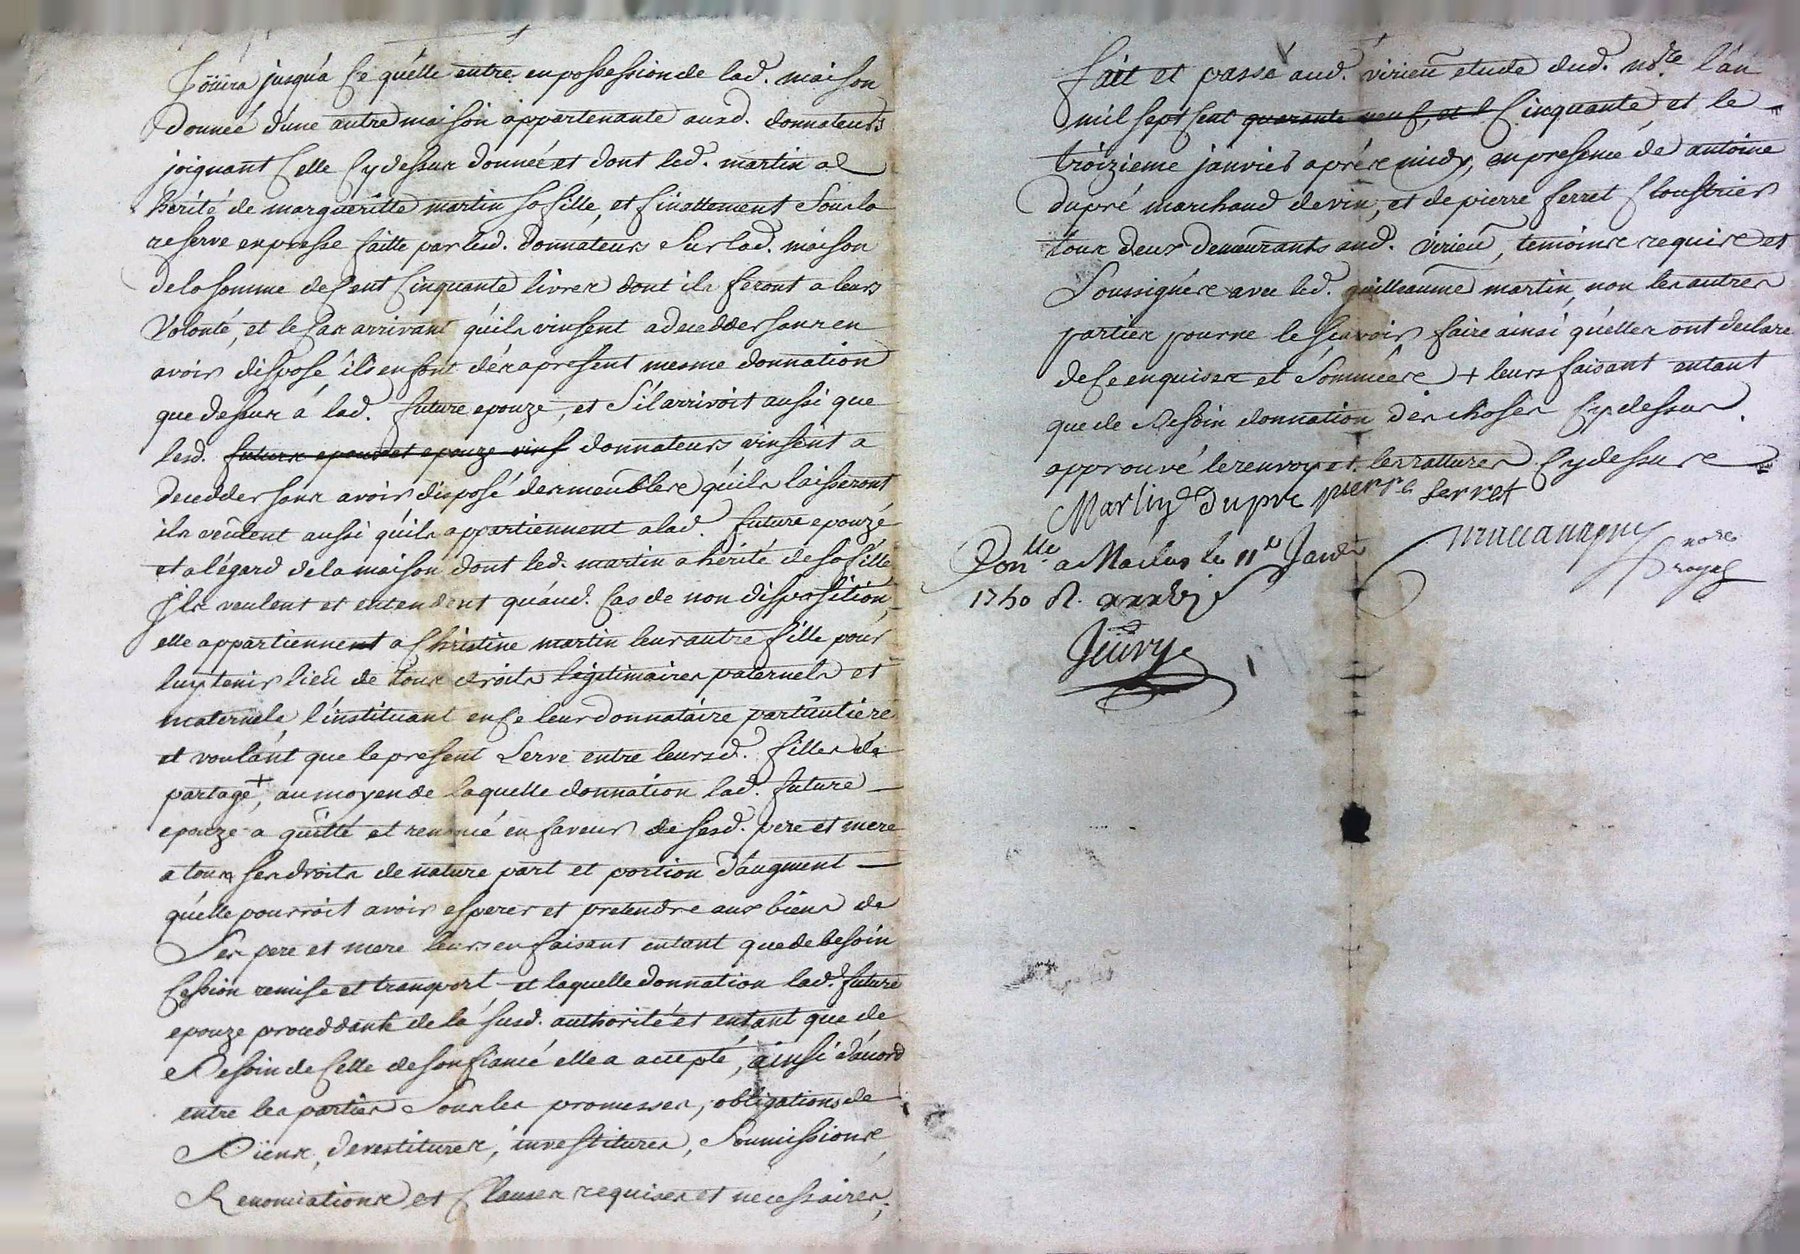 Joüira jusqu'a ce qu'elle entre en possession de lad. maison
donneé d'une autre maison appartenante ausd. donnateurs
joignant celle cy dessus donneé et dont led. martin a
hérité de margueritte martin sa fille, et finallement sous la
reserve expresse faitte par lesd. donnateurs sur lad. maison
de la somme de cent cinquante livres dont ils feront a leurs
volonté, et le cas arrivant qu'ils vinsent a decedder sans en
avoir disposé ils en font dés apresent mesme donnation
que dessus á lad. future epouze, et s'il arrivoit aussi que
lesd. future epoux et epouze vinf donnateurs vinsent a
decedder sans avoir disposé des meubles qu'ils laisseront
ils veulent aussi qu'ils appartiennent a lad. future epouze
et a l'égard de la maison dont led. martin a hérité de sa fille
Ils veulent et entendent qu'aud. cas de non disposition,
elle appartiennent a Christine martin leur autre fille pour
luy tenir lieu de tous droits légitimaires paternels et
maternels, l'instituant en ce leur donnataire particuliere
et voulant que le present serve entre leursd. filles de
partage +, au moyen de laquelle donnation lad. future
epouze a quitté et renoncé en faveur de sesd. pere et mere
a tous ses droits de nature part et portion d'augment
qu'elle pourroit avoir esperer et pretendre aux biens de
Ses pere et mere leurs en faisant entant que de besoin
cession remise et transport et laquelle donnation lad. future
epouze proceddante de la susd. authorité et entant que de
Besoin de celle de son fiancé elle a accepté, ainsi d'acord
entre les parties sous les promesses, obligations de
Biens, devestitures, investitures, soumissions,
Renonciations et clauses requises et necessaires,
fait et passé aud. virieu etude dud. nore. l'an
mil sept cent quarante neuf, et l cinquante, et le
troizieme janvier aprés midy, en presence de antoine
dupré marchand de vin, et de pierre ferret cloustrier
tous deux demeurants aud. virieu, temoins requis et
Soussignés avec led. guilleaume martin, non les autres
parties pour ne le sçavoir faire ainsi qu'elles ont declare
de ce enquises et sommeés + leurs faisant entant
que de Besoin donnation des choses cy dessus.
approuvé le renvoy et les rattures cy dessus
Martin Dupre pierre ferret
nore
royal
Conlle a le 11e Janr
1750 R.